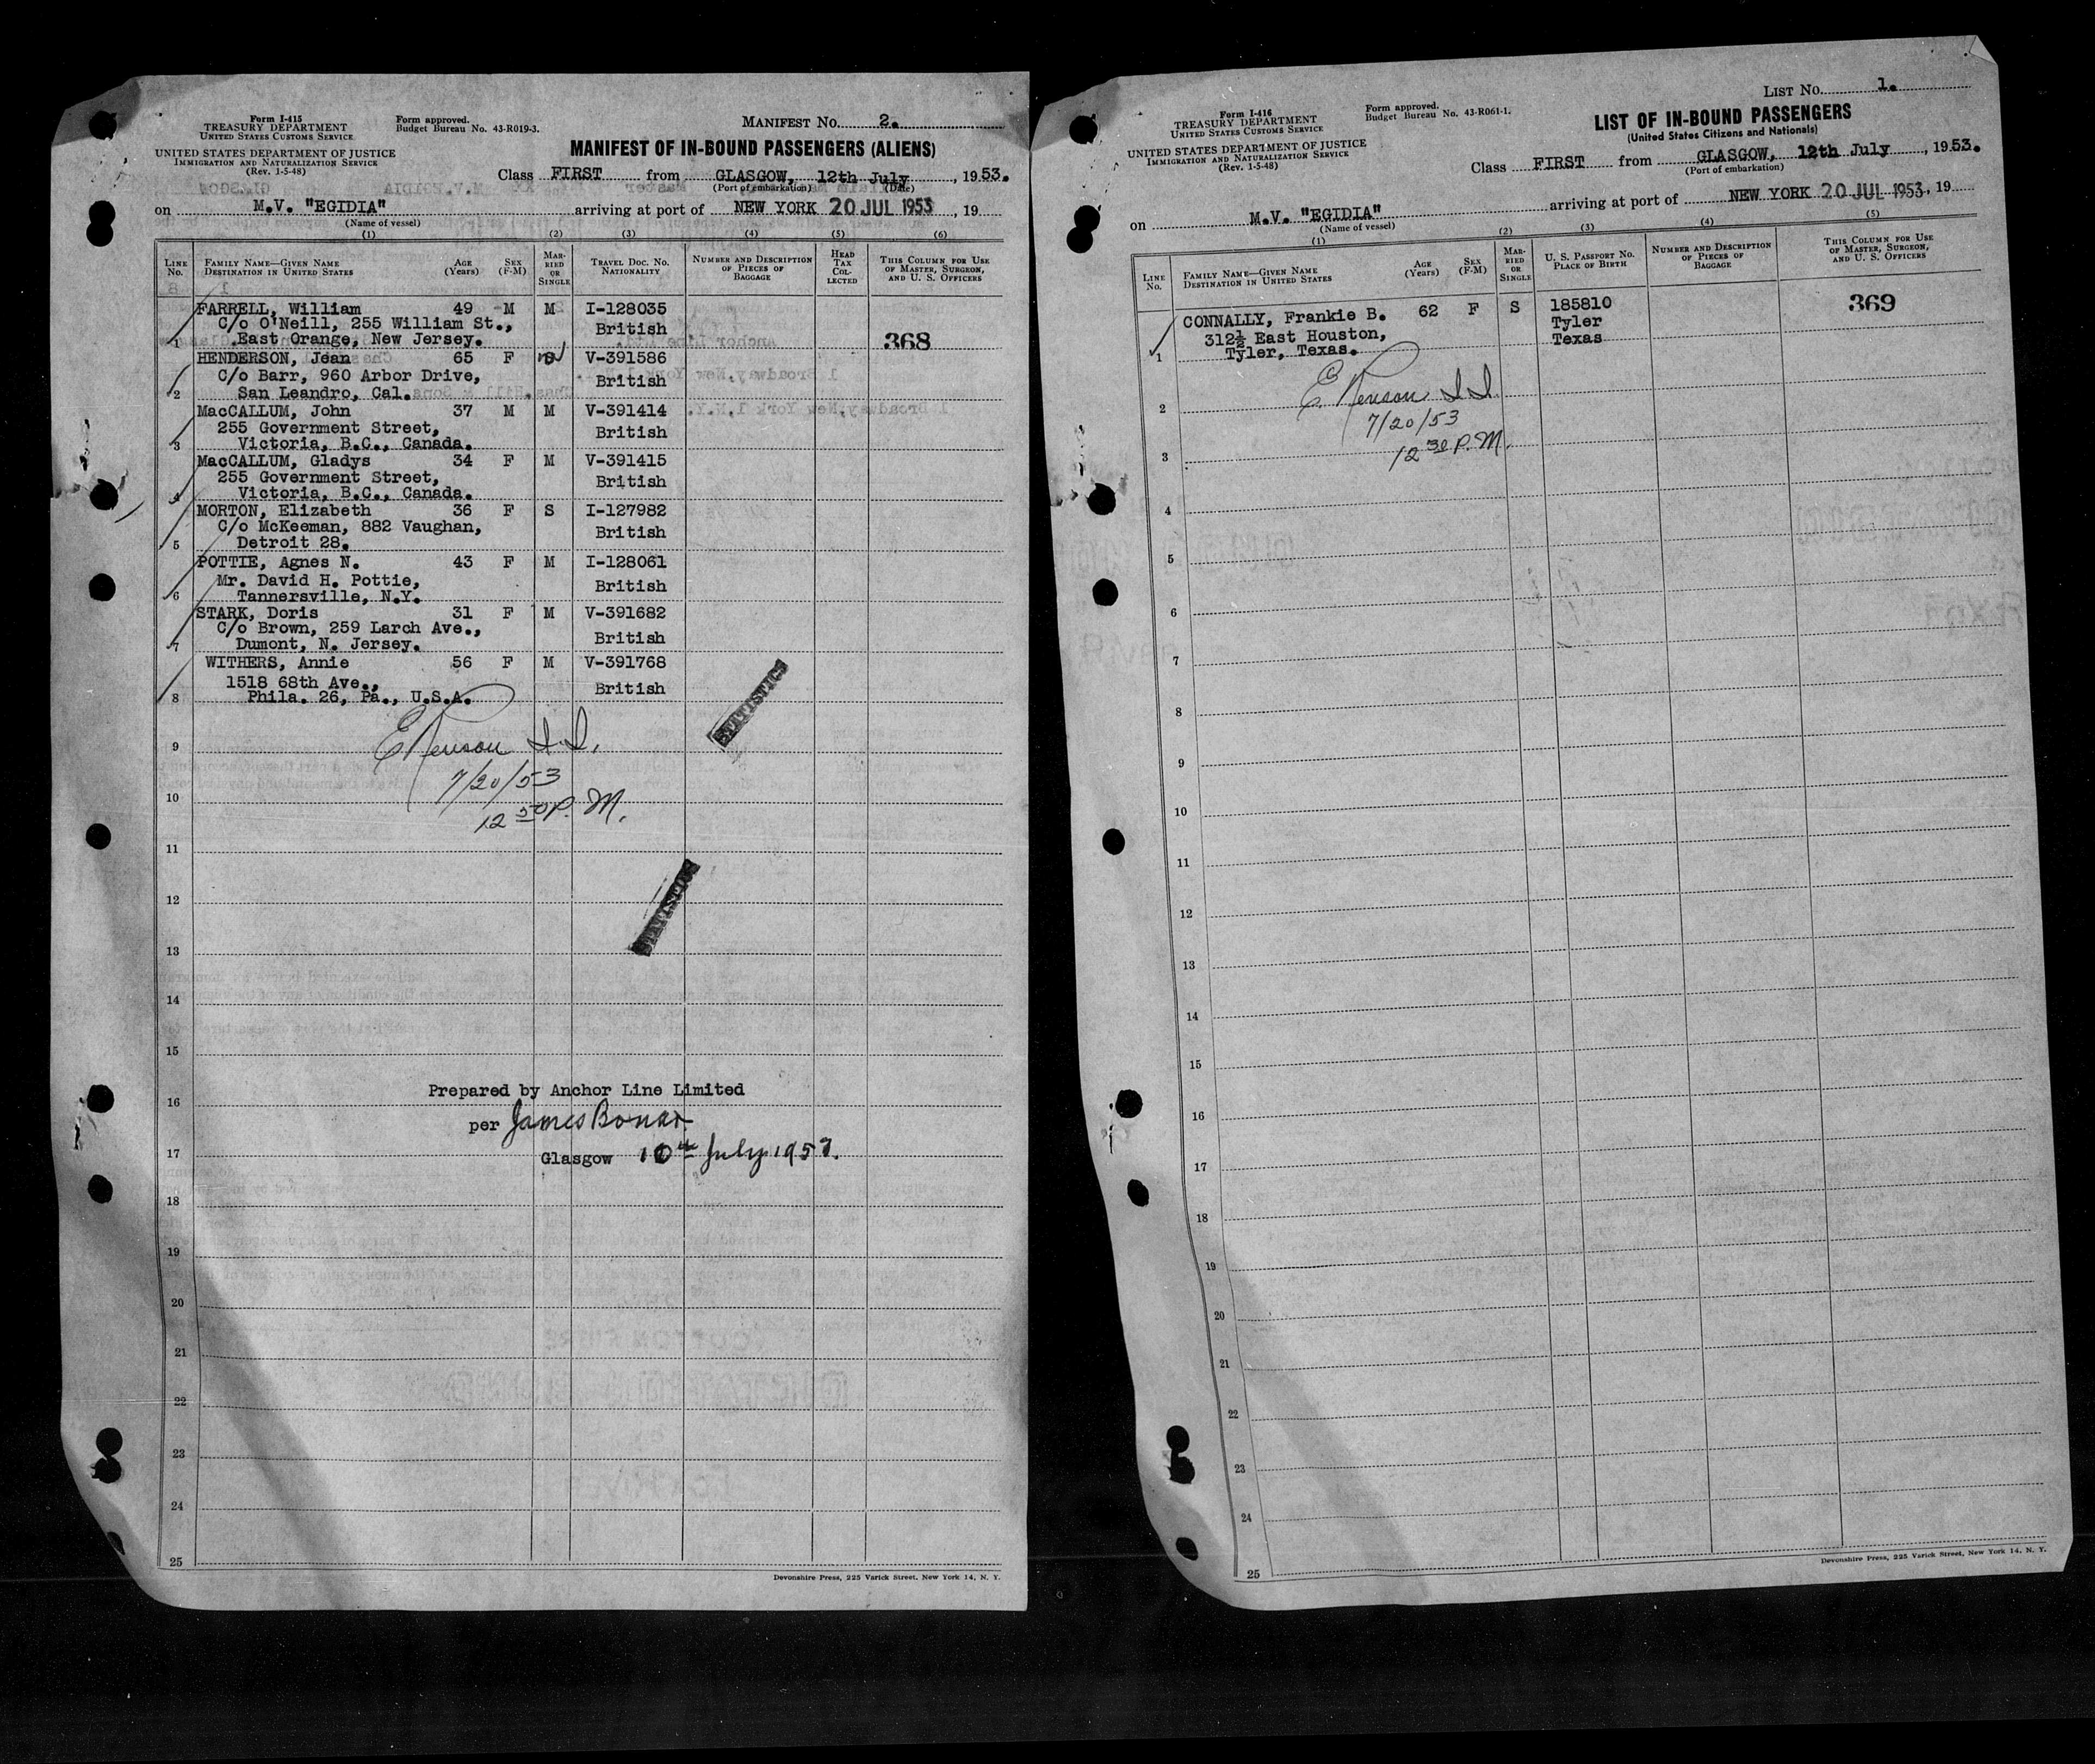 Form I-415
TREASURY DEPARTMENT
UNITED STATES CUSTOMS SERVICE
UNITED STATES DEPARTMENT OF JUSTICE
IMMIGRATION AND NATURALIZATION SERVICE
(Rev. 1-5-48)
Form approved.
Budget Bureau No. 43-R019-3.
MANIFEST No. 2.
MANIFEST OF IN-BOUND PASSENGERS (ALIENS)
Class FIRST from GLASGOW, 12th July, 1953.
(Port of embarkation) (Date)
on M.V. "EGIDIA" arriving at port of NEW YORK 20 JUL 1953, 19
(Name of vessel)
(1) (2) (3) (4) (5) (6)
LINE No. FAMILY NAME—GIVEN NAME DESTINATION IN UNITED STATES AGE (Years) SEX (F-M) MARRIED OR SINGLE TRAVEL DOC. NO. NATIONALITY NUMBER AND DESCRIPTION OF PIECES OF BAGGAGE HEAD TAX COLLECTED THIS COLUMN FOR USE OF MASTER, SURGEON, AND U. S. OFFICERS
FARRELL, William 49 M M I-128035
C/o O'Neill, 255 William St., British
1 East Orange, New Jersey. 368
HENDERSON, Jean 65 F V-391586
C/o Barr, 960 Arbor Drive, British
2 San Leandro, Cal.
MacCALLUM, John 37 M M V-391414
255 Government Street, British
3 Victoria, B.C., Canada.
MacCALLUM, Gladys 34 F M V-391415
255 Government Street, British
4 Victoria, B.C., Canada.
MORTON, Elizabeth 36 F S I-127982
C/o McKeeman, 882 Vaughan, British
5 Detroit 28.
POTTIE, Agnes N. 43 F M I-128061
Mr. David H. Pottie, British
6 Tannersville, N.Y.
STARK, Doris 31 F M V-391682
C/o Brown, 259 Larch Ave., British
7 Dumont, N. Jersey.
WITHERS, Annie 56 F M V-391768
1518 68th Ave., British
8 Phila. 26, Pa., U.S.A.
STATISTICS
9
7/20/53
10
12 50 P.M.
11
STATISTICS
12
13
14
15
Prepared by Anchor Line Limited
16
per James Bonar
17 Glasgow 10th July 1953.
18
19
20
21
22
23
24
25
Devonshire Press, 225 Varick Street, New York 14, N. Y.
LIST No. 1.
Form I-416
TREASURY DEPARTMENT
UNITED STATES CUSTOMS SERVICE
UNITED STATES DEPARTMENT OF JUSTICE
IMMIGRATION AND NATURALIZATION SERVICE
(Rev. 1-5-48)
Form approved.
Budget Bureau No. 43-R061-1.
LIST OF IN-BOUND PASSENGERS
(United States Citizens and Nationals)
Class FIRST from GLASGOW, 12th July, 1953.
(Port of embarkation)
on M.V. "EGIDIA" arriving at port of NEW YORK 20 JUL 1953, 19
(Name of vessel)
(1) (2) (3) (4) (5)
LINE No. FAMILY NAME—GIVEN NAME DESTINATION IN UNITED STATES AGE (Years) SEX (F-M) MARRIED OR SINGLE U. S. PASSPORT NO. PLACE OF BIRTH NUMBER AND DESCRIPTION OF PIECES OF BAGGAGE THIS COLUMN FOR USE OF MASTER, SURGEON, AND U. S. OFFICERS
CONNALLY, Frankie B. 62 F S 185810 369
312½ East Houston, Tyler
1 Tyler, Texas. Texas
2
7/20/53
3 12 30 P.M.
4
5
6
7
8
9
10
11
12
13
14
15
16
17
18
19
20
21
22
23
24
25
Devonshire Press, 225 Varick Street, New York 14, N. Y.